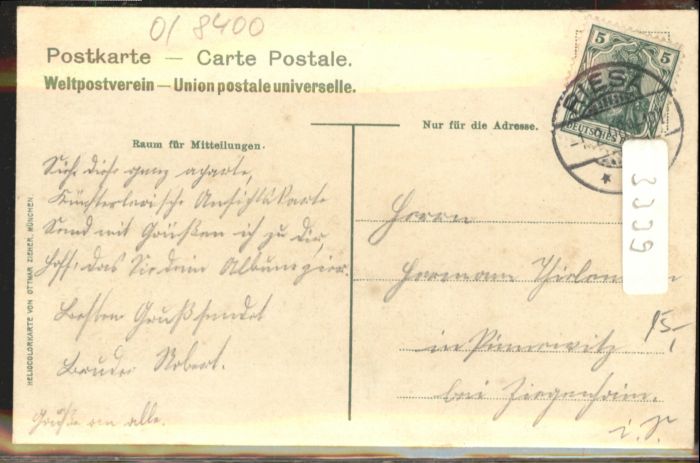 01 8400
Postkarte — Carte Postale.
Weltpostverein — Union postale universelle.
5 5
RIESA
DEUTSCHES
Raum für Mitteilungen.
Nur für die Adresse.
Sieh diese ganz aparte,
Künstlerische Ansichtskarte
Send mit Grüßen ich zu Dir,
Hoff, das Sie dein Album zier.
Besten Gruß sendet
Bruder Robert.
Grüße an alle.
Herrn
Hermann
in
bei Ziegenhain.
i. S.
15,-
3009
HELIOCOLORKARTE VON OTTMAR ZIEHER, MÜNCHEN.